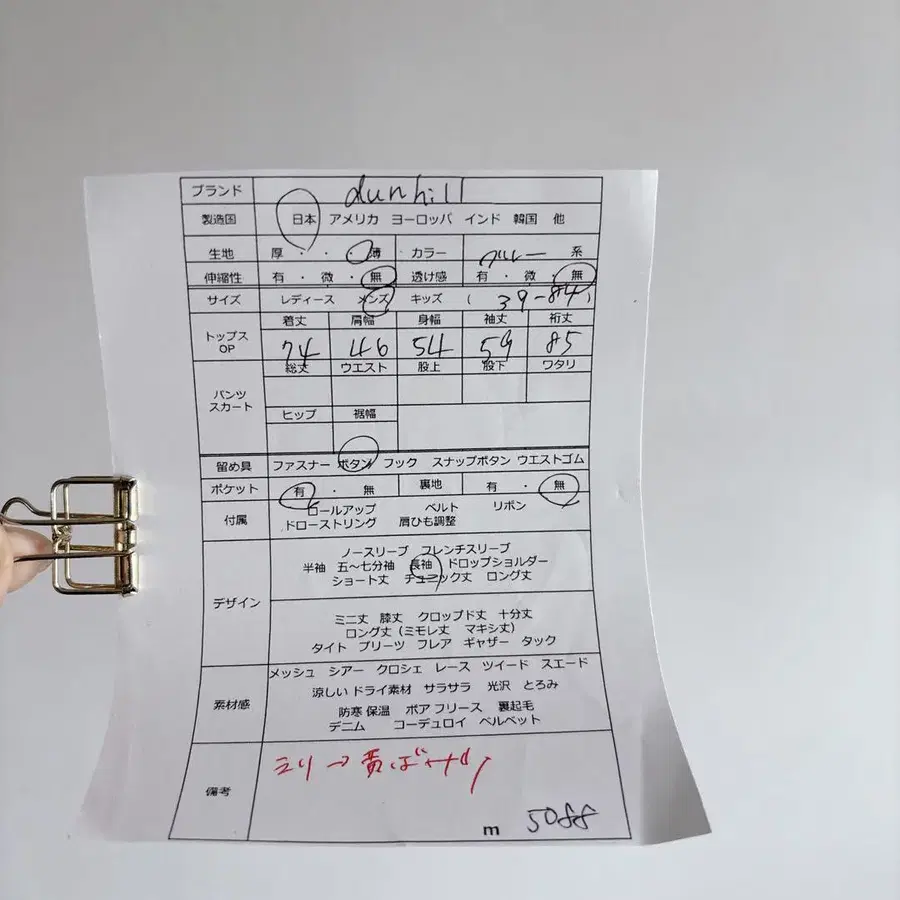 ブランド dunhill
製造国 日本 アメリカ ヨーロッパ インド 韓国 他
生地 厚・・・薄 カラー ブルー 系
伸縮性 有・微・無 透け感 有・微・無
サイズ レディース メンズ キッズ ( 39-84 )
トップス OP 着丈 肩幅 身幅 袖丈 裄丈
74 46 54 59 85
パンツ スカート 総丈 ウエスト 股上 股下 ワタリ
ヒップ 裾幅
留め具 ファスナー ボタン フック スナップボタン ウエストゴム
ポケット 有・無 裏地 有・無
付属 ロールアップ ベルト リボン
ドローストリング 肩ひも調整
デザイン
ノースリーブ フレンチスリーブ
半袖 五〜七分袖 長袖 ドロップショルダー
ショート丈 チュニック丈 ロング丈
ミニ丈 膝丈 クロップド丈 十分丈
ロング丈(ミモレ丈 マキシ丈)
タイト プリーツ フレア ギャザー タック
素材感
メッシュ シアー クロシェ レース ツイード スエード
涼しい ドライ素材 サラサラ 光沢 とろみ
防寒 保温 ボア フリース 裏起毛
デニム コーデュロイ ベルベット
備考
えり→黄ばみ
m 5088